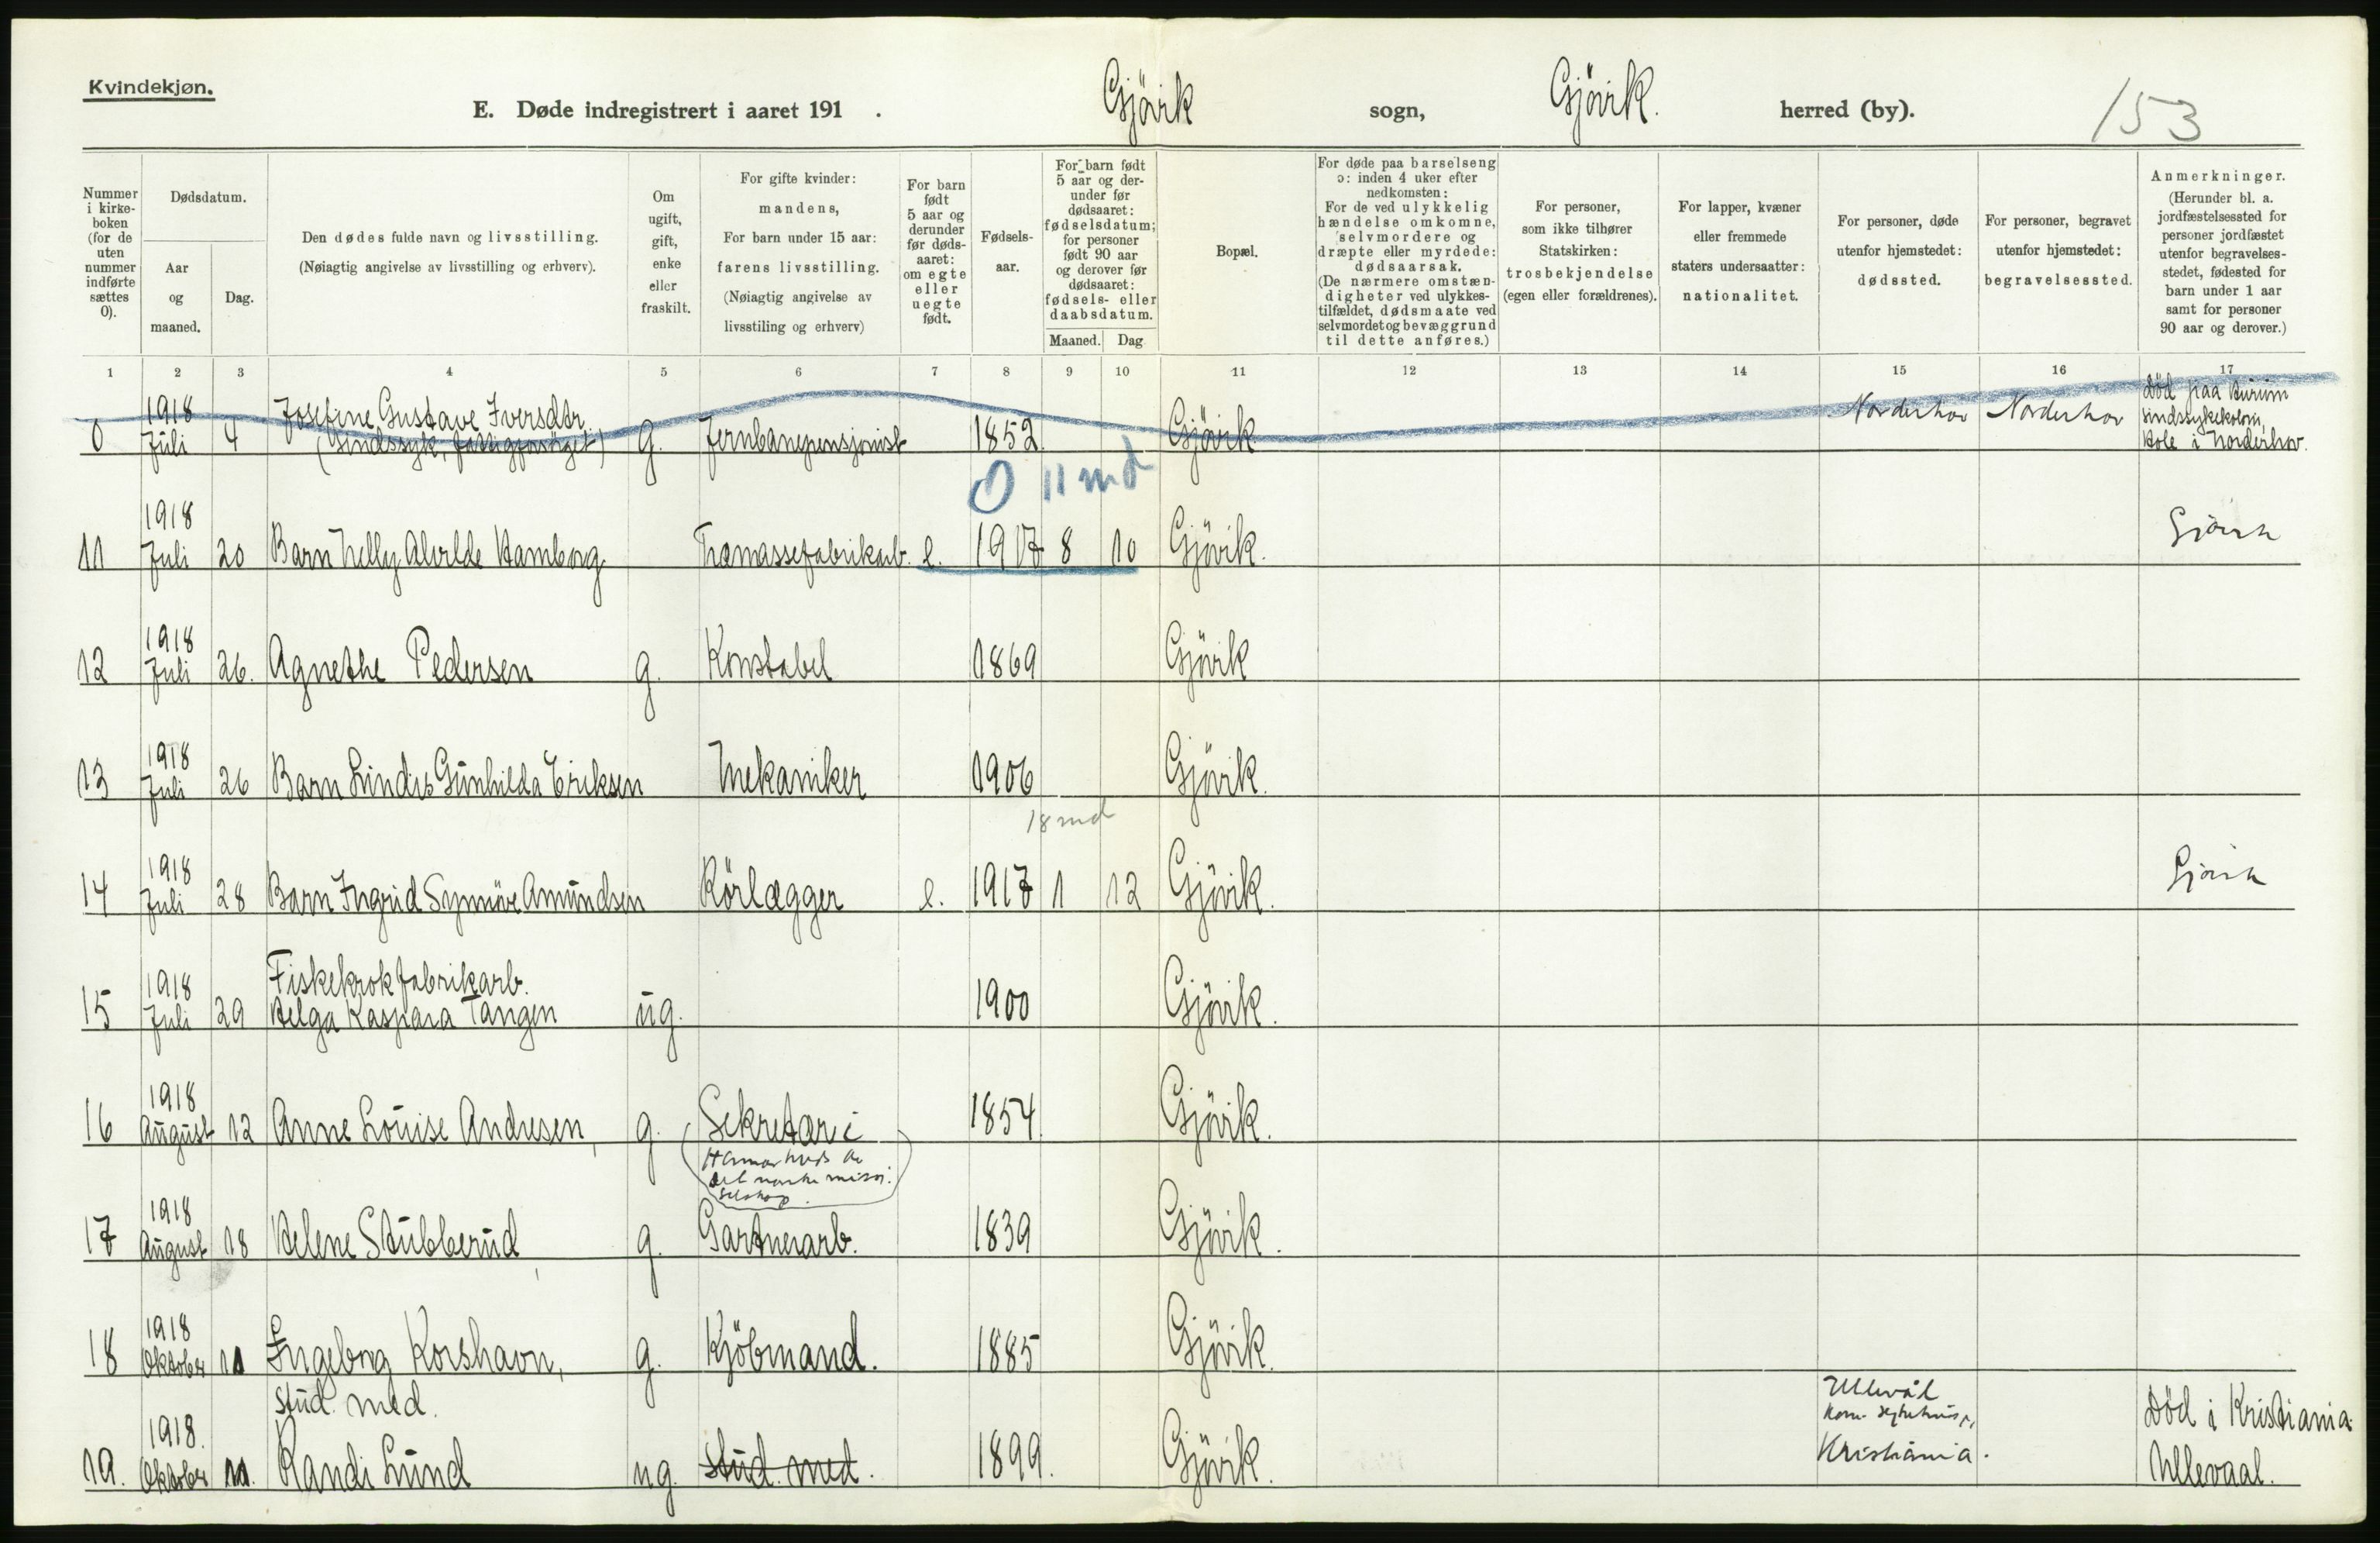 Kvindekjøn.
E. Døde indregistrert i aaret 191 . Gjövik sogn, Gjövik. herred (by). 153
Nummer i kirke-boken (for de uten nummer indførte sættes 0).
Dødsdatum.
Aar og maaned.
Dag.
Den dødes fulde navn og livsstilling.
(Nøiagtig angivelse av livsstilling og erhverv).
Om ugift, gift, enke eller fraskilt.
For gifte kvinder: mandens,
For barn under 15 aar: farens livsstilling.
(Nøiagtig angivelse av livsstiling og erhverv)
For barn født 5 aar og derunder før døds-aaret: om egte eller uegte født.
Fødsels-aar.
For barn født 5 aar og der-under før dødsaaret: fødselsdatum; for personer født 90 aar og derover før dødsaaret: fødsels- eller daabsdatum.
Maaned. Dag
Bopæl.
For døde paa barselseng ɔ: inden 4 uker efter nedkomsten:
For de ved ulykkelig hændelse omkomne, selvmordere og dræpte eller myrdede: dødsaarsak.
(De nærmere omstæn-digheter ved ulykkes-tilfældet, dødsmaate ved selvmordet og bevæggrund til dette anføres.)
For personer, som ikke tilhører Statskirken: trosbekjendelse (egen eller forældrenes).
For lapper, kvæner eller fremmede staters undersaatter: nationalitet.
For personer, døde utenfor hjemstedet: dødssted.
For personer, begravet utenfor hjemstedet: begravelsessted.
Anmerkninger.
(Herunder bl. a. jordfæstelsessted for personer jordfæstet utenfor begravelses-stedet, fødested for barn under 1 aar samt for personer 90 aar og derover.)
1 2 3 4 5 6 7 8 9 10 11 12 13 14 15 16 17
0 1918 Juli 4 Josefine Gustave Iversdtr. (Sindssyk, fattigforsörget) g. Jernbanepensjonist 1852 Gjövik Norderhov Norderhov Död paa sindssykekoloni, Hole i Norderhov.
0 11 md
11 1918 Juli 20 Barn Nelly Alvilde Hamborg Træmassefabrikarb. e. 1917 8 10 Gjövik. Gjövik
12 1918 Juli 26. Agnethe Pedersen g. Konstabel 1869 Gjövik
13 1918 Juli 26 Barn Lindis Gunhilda Eriksen Mekaniker 1906 Gjövik.
18 md
14 1918 Juli 28 Barn Ingrid Synnöve Amundsen Rörlægger e. 1917 1 12 Gjövik. Gjövik
15 1918 Juli 29 Fiskekrokfabrikarb. Helga Kaspara Tangen ug. 1900 Gjövik.
16 1918 August 12 Anne Louise Andresen, g. Sekretær i 1854 Gjövik.
(Hamar kreds av det norske misj. selskap.)
17 1918 August 18 Helene Stubberud g. Gartnerarb. 1839 Gjövik.
18 1918 Oktober 11 Ingeborg Korshavn, g. Kjöbmand. 1885 Gjövik.
19. 1918. Oktober 11. stud. med. Randi Lund ug. stud. med. 1899. Gjövik. Ullevål Kom. sykehus, Kristiania. Död i Kristiania Ullevaal.